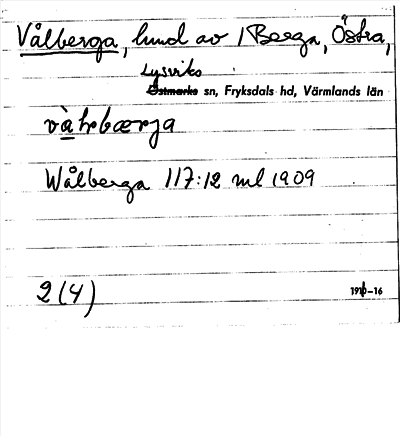 Vålberga, hmd av 1 Berga, Östra,
Lysviks
Östmarks sn, Fryksdals hd, Värmlands län
Wålberga 117:12 ml 1909
2 (4)